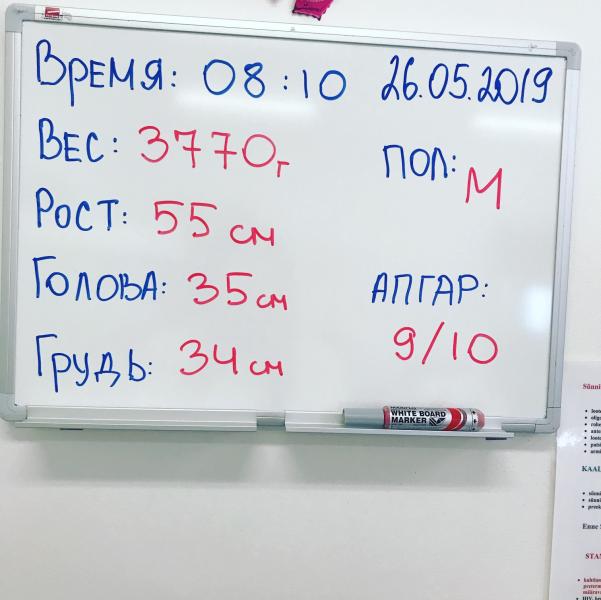 Время: 08:10 26.05.2019
Вес: 3770г
Пол: М
Рост: 55 см
Голова: 35 см
Апгар:
9/10
Грудь: 34 см
WHITE BOARD
MARKER
Sünni
KAAL
Enne
STAN